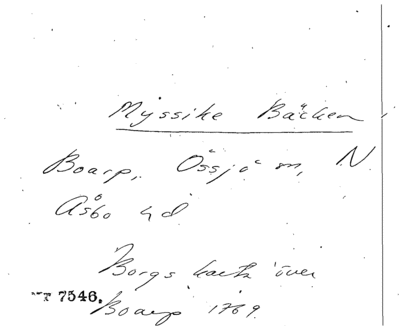 Myssike Bäcken
Boarp, Össjö sn, N
Åsbo hd
Borgs karta över
7546.
Boarp 1769.